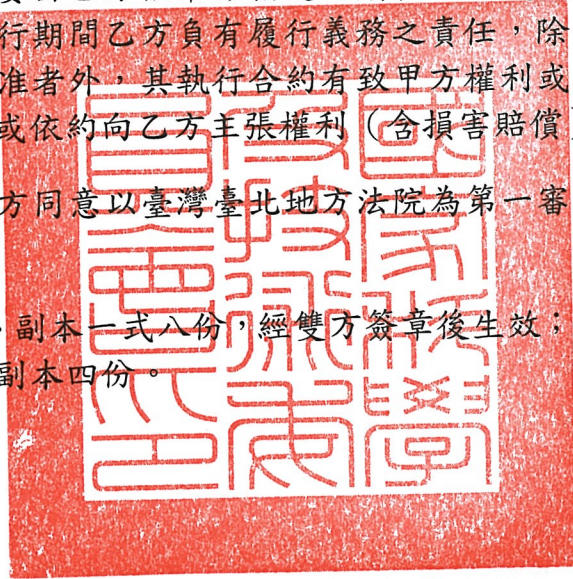 行期間乙方負有履行義務之責任，除
准者外，其執行合約有致甲方權利或
或依約向乙方主張權利（含損害賠償
方同意以臺灣臺北地方法院為第一審
副本一式八份，經雙方簽章後生效；
副本四份。
國家科學
及技術委
員會印